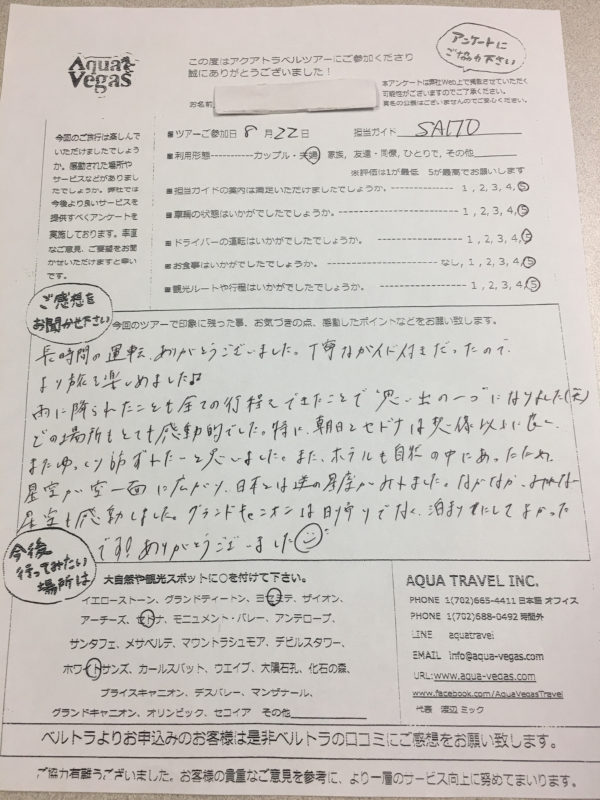 Aqua Vegas
この度はアクアトラベルツアーにご参加くださり
誠にありがとうございました!
アンケートに
ご協力下さい
本アンケートは弊社Web上で掲載させていただく
可能性がございますのでご了承ください。
実名の公表はございませんのでご安心ください。
お名前
今回のご旅行は楽しんで
いただけましたでしょう
か。感動された場所や
サービスなどがありまし
たでしょうか。弊社では
今後より良いサービスを
提供すべくアンケートを
実施しております。率直
なご意見、ご要望をお聞
かせいただけますと幸い
です。
■ツアーご参加日 8月22日 担当ガイド SAITO
■利用形態----------カップル・夫婦、家族、友達・同僚、ひとりで、その他
※評価は1が最低 5が最高でお願いします
■担当ガイドの案内は満足いただけましたでしょうか。 1, 2, 3, 4, 5
■車輌の状態はいかがでしたでしょうか。 1, 2, 3, 4, 5
■ドライバーの運転はいかがでしたでしょうか。 1, 2, 3, 4, 5
■お食事はいかがでしたでしょうか。 なし, 1, 2, 3, 4, 5
■観光ルートや行程はいかがでしたでしょうか。 1, 2, 3, 4, 5
ご感想を
お聞かせ下さい
今回のツアーで印象に残った事、お気づきの点、感動したポイントなどをお願い致します。
長時間の運転、ありがとうございました。丁寧なガイド付きだったので、
より旅を楽しめました♫
雨に降られたことも全ての行程をできたことで"思い出の一つ"になりました(笑)
どの場所もとても感動的でした。特に、朝日とセドナは想像以上に良く、
またゆっくり訪ずれたいと思いました。また、ホテルも自然の中にあったため、
星空が空一面に広がり、日本とは逆の星座がみれました。なかなか、みれない
星空も感動しました。グランドキャニオンは日帰りでなく、泊まりにしてよかった
です!ありがとうございました
今後
行ってみたい
場所は
大自然や観光スポットに○を付けて下さい。
イエローストーン、グランドティートン、ヨセミテ、ザイオン、
アーチーズ、セドナ、モニュメント・バレー、アンテロープ、
サンタフェ、メサベルデ、マウントラシュモア、デビルスタワー、
ホワイトサンズ、カールスバット、ウエイブ、大隕石孔、化石の森、
ブライスキャニオン、デスバレー、マンザナール、
グランドキャニオン、オリンピック、セコイア その他
AQUA TRAVEL INC.
PHONE 1(702)665-4411 日本語 オフィス
PHONE 1(702)688-0492 時間外
LINE aquatravel
EMAIL info@aqua-vegas.com
URL:www.aqua-vegas.com
www.facebook.com/AquaVegasTravel
代表 渡辺 ミック
ベルトラよりお申込みのお客様は是非ベルトラの口コミにご感想をお願い致します。
ご協力有難うございました。お客様の貴重なご意見を参考に、より一層のサービス向上に努めてまいります。